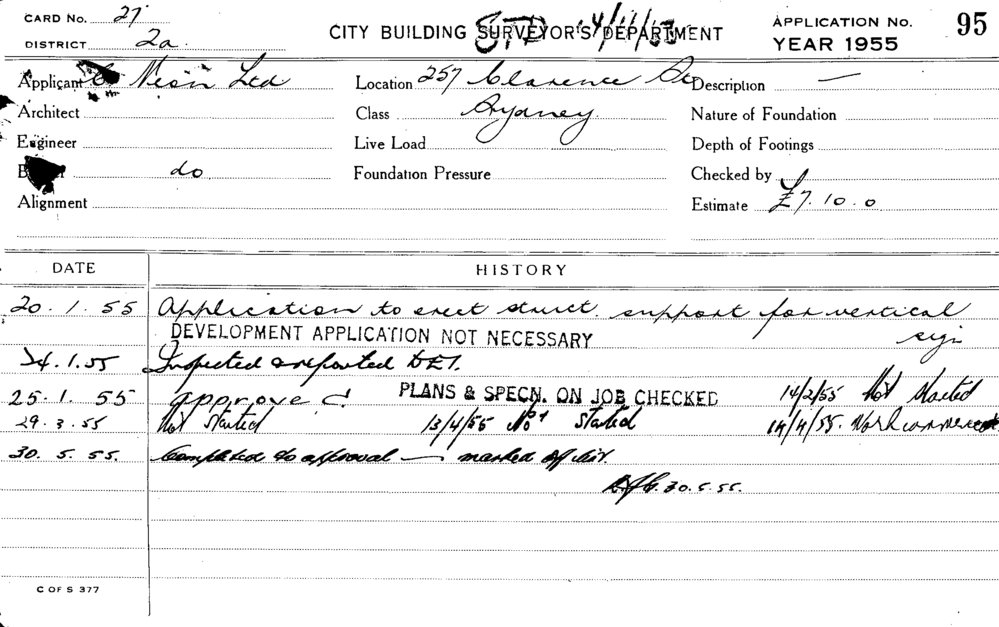 CARD No. 27
DISTRICT 2a.
CITY BUILDING SURVEYOR'S DEPARTMENT
APPLICATION No. 95
YEAR 1955
Applicant Neon Ltd
Location 257 Clarence St
Description —
Architect
Class Sydney
Nature of Foundation
Engineer
Live Load
Depth of Footings
do
Foundation Pressure
Checked by
Alignment
Estimate £7.10.0
DATE
HISTORY
20.1.55 Application to erect struct. support for vertical
sign
DEVELOPMENT APPLICATION NOT NECESSARY
24.1.55 Inspected & reported
25.1.55 approved PLANS & SPECN. ON JOB CHECKED 14/2/55 Not Started
29.3.55 Not Started 13/4/55 Not Started 14/4/55. Work commenced
30.5.55. Completed to approval — marked off list.
30.5.55.
C OF S 377